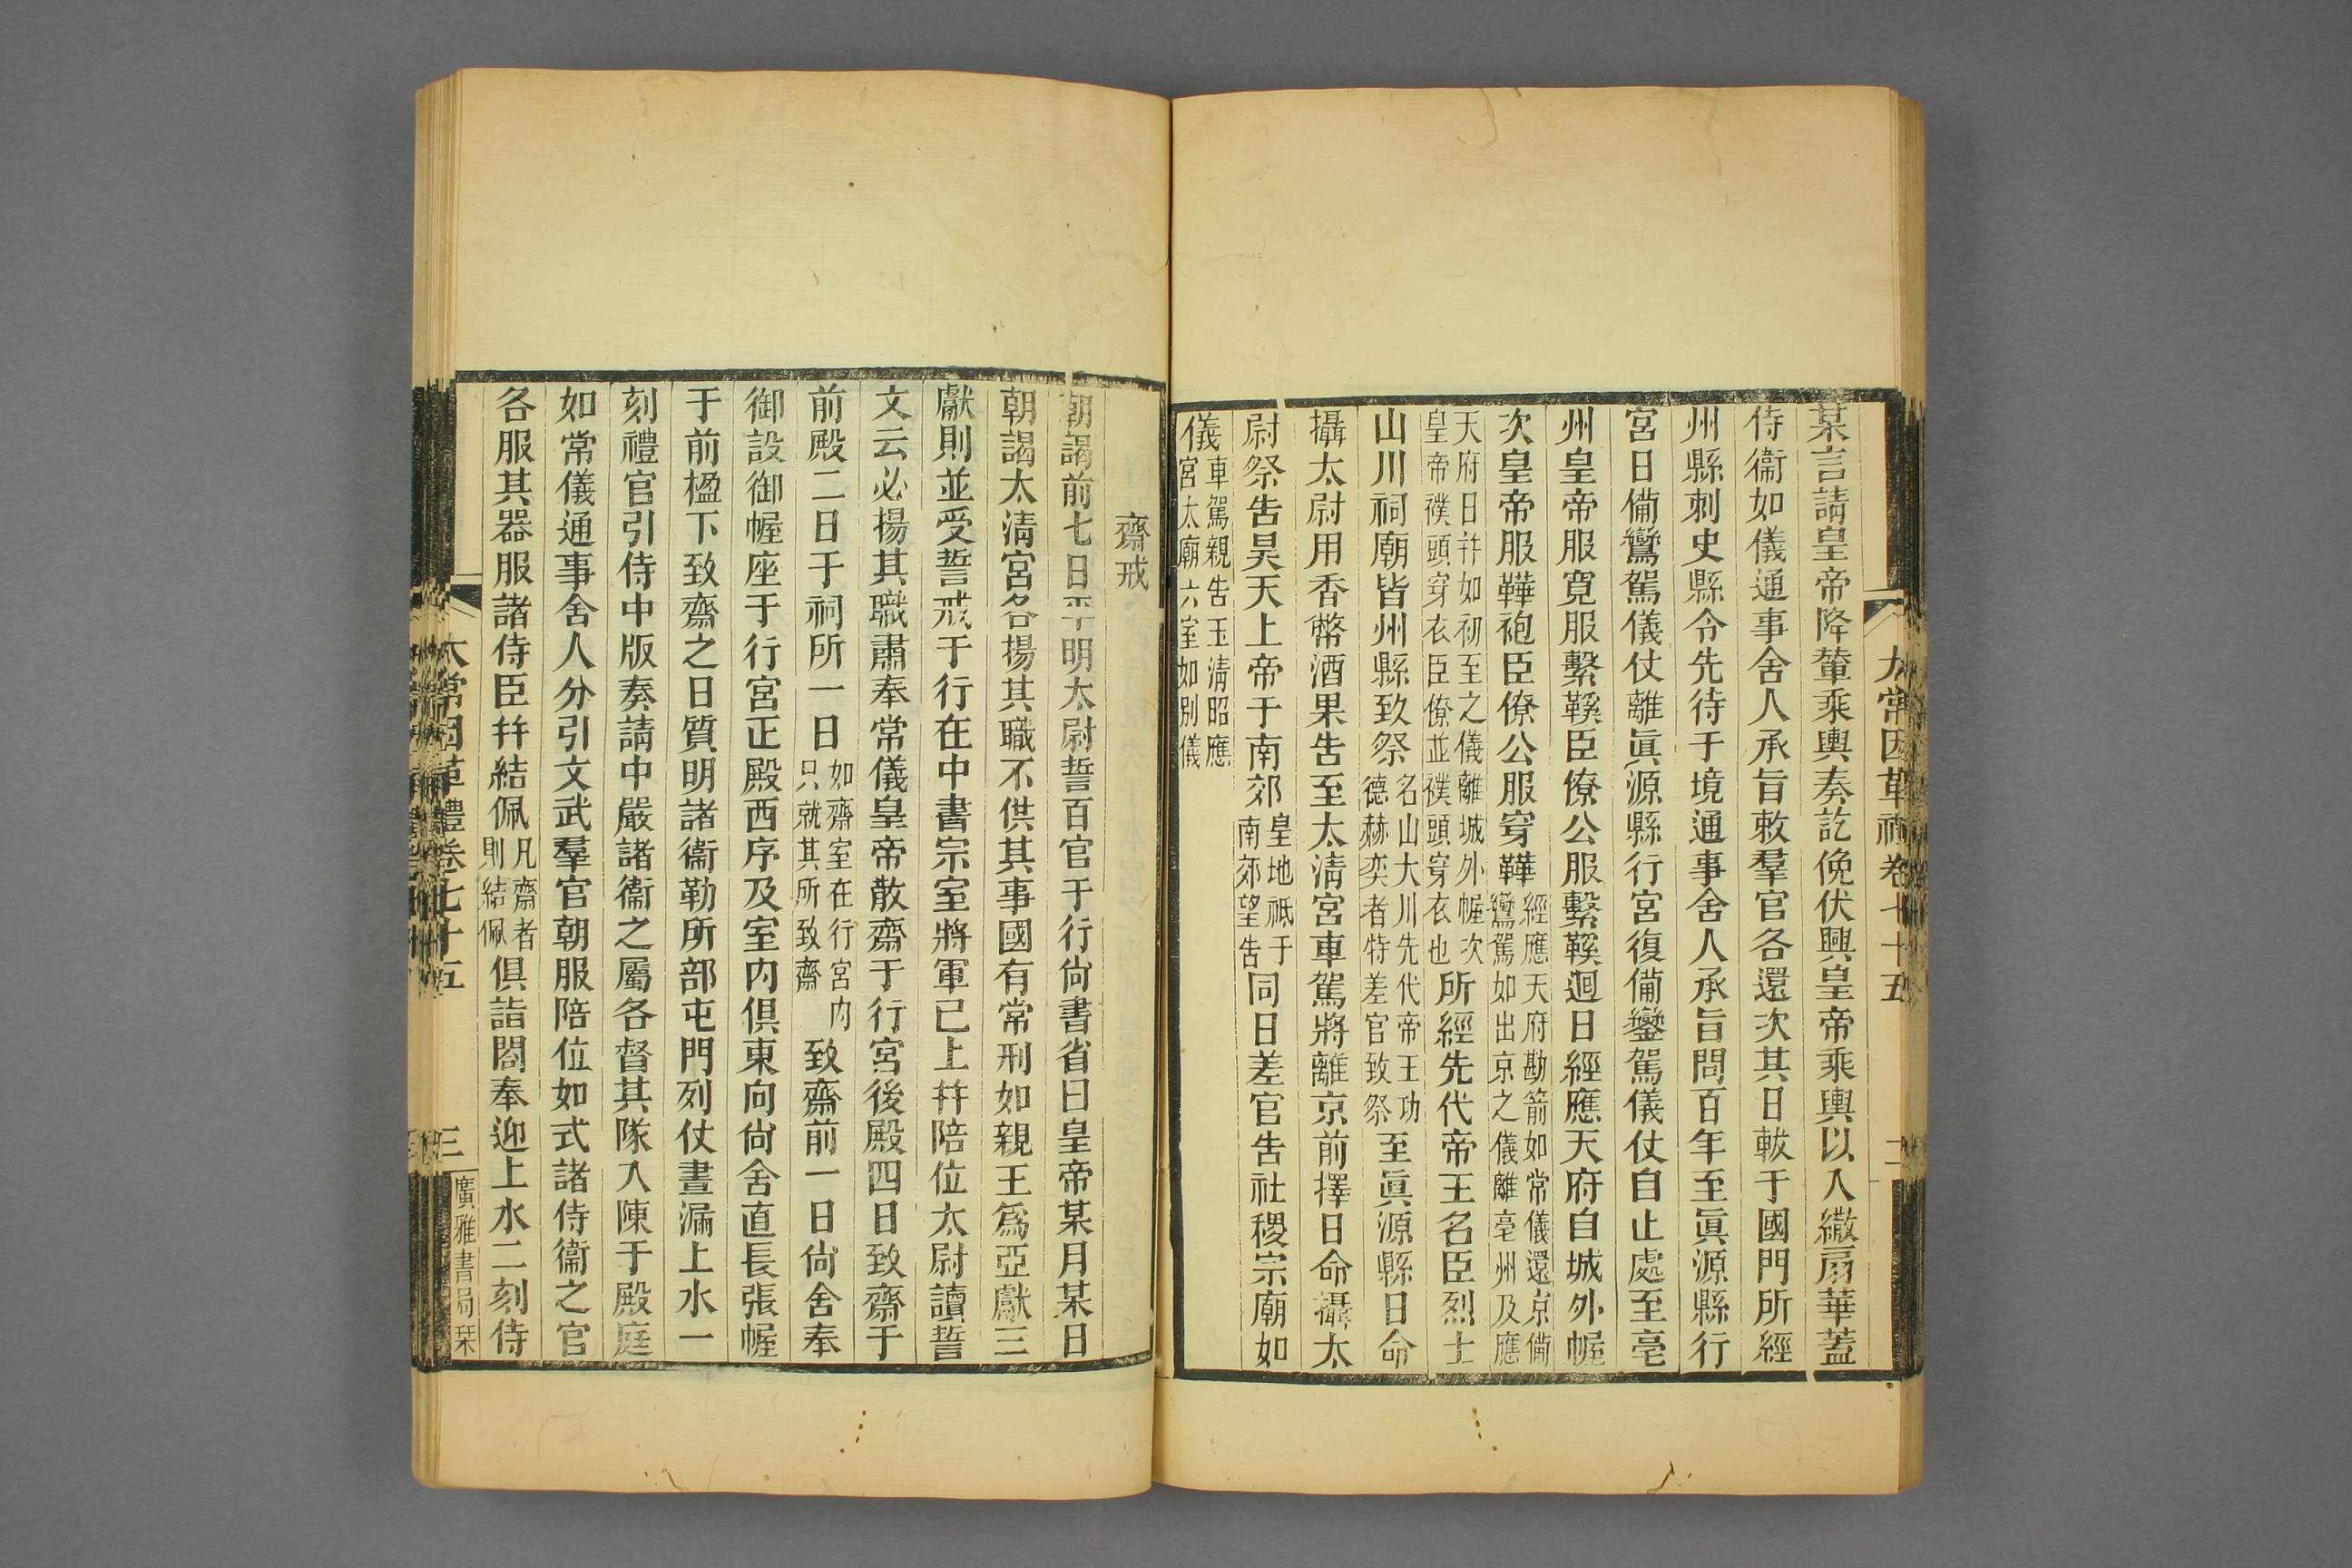 某言請皇帝降輦乘輿奏訖俛伏興皇帝乘輿以入繖扇華蓋
侍衞如儀通事舍人承旨敕羣官各還次其日軷于國門所經
州縣刺史縣令先待于境通事舍人承旨問百年至眞源縣行
宮日備鸞駕儀仗離眞源縣行宮復備鑾駕儀仗自止處至亳
州皇帝服寬服繫鞵臣僚公服繫鞵迴日經應天府自城外幄
次皇帝服鞾袍臣僚公服穿鞾經應天府勘箭如常儀還京備鸞駕如出京之儀離亳州及應
天府日幷如初至之儀離城外幄次皇帝襆頭穿衣臣僚並襆頭穿衣也所經先代帝王名臣烈士
山川祠廟皆州縣致祭名山大川先代帝王功德赫奕者特差官致祭至眞源縣日命
攝太尉用香幣酒果告至太淸宮車駕將離京前擇日命攝太
尉祭告昊天上帝于南郊皇地祇于南郊望告同日差官告社稷宗廟如
儀車駕親告玉淸昭應宮太廟六室如別儀
太常因革禮卷七十五
二
齋戒
朝謁前七日平明太尉誓百官于行尙書省曰皇帝某月某日
朝謁太淸宮各揚其職不供其事國有常刑如親王爲亞獻三
獻則並受誓戒于行在中書宗室將軍已上幷陪位太尉讀誓
文云必揚其職肅奉常儀皇帝散齋于行宮後殿四日致齋于
前殿二日于祠所一日如齋室在行宮內只就其所致齋致齋前一日尙舍奉
御設御幄座于行宮正殿西序及室內俱東向尙舍直長張幄
于前楹下致齋之日質明諸衞勒所部屯門列仗晝漏上水一
刻禮官引侍中版奏請中嚴諸衞之屬各督其隊入陳于殿庭
如常儀通事舍人分引文武羣官朝服陪位如式諸侍衞之官
各服其器服諸侍臣幷結佩凡齋者則結佩俱詣閤奉迎上水二刻侍
太常因革禮卷七十五
三
廣雅書局栞